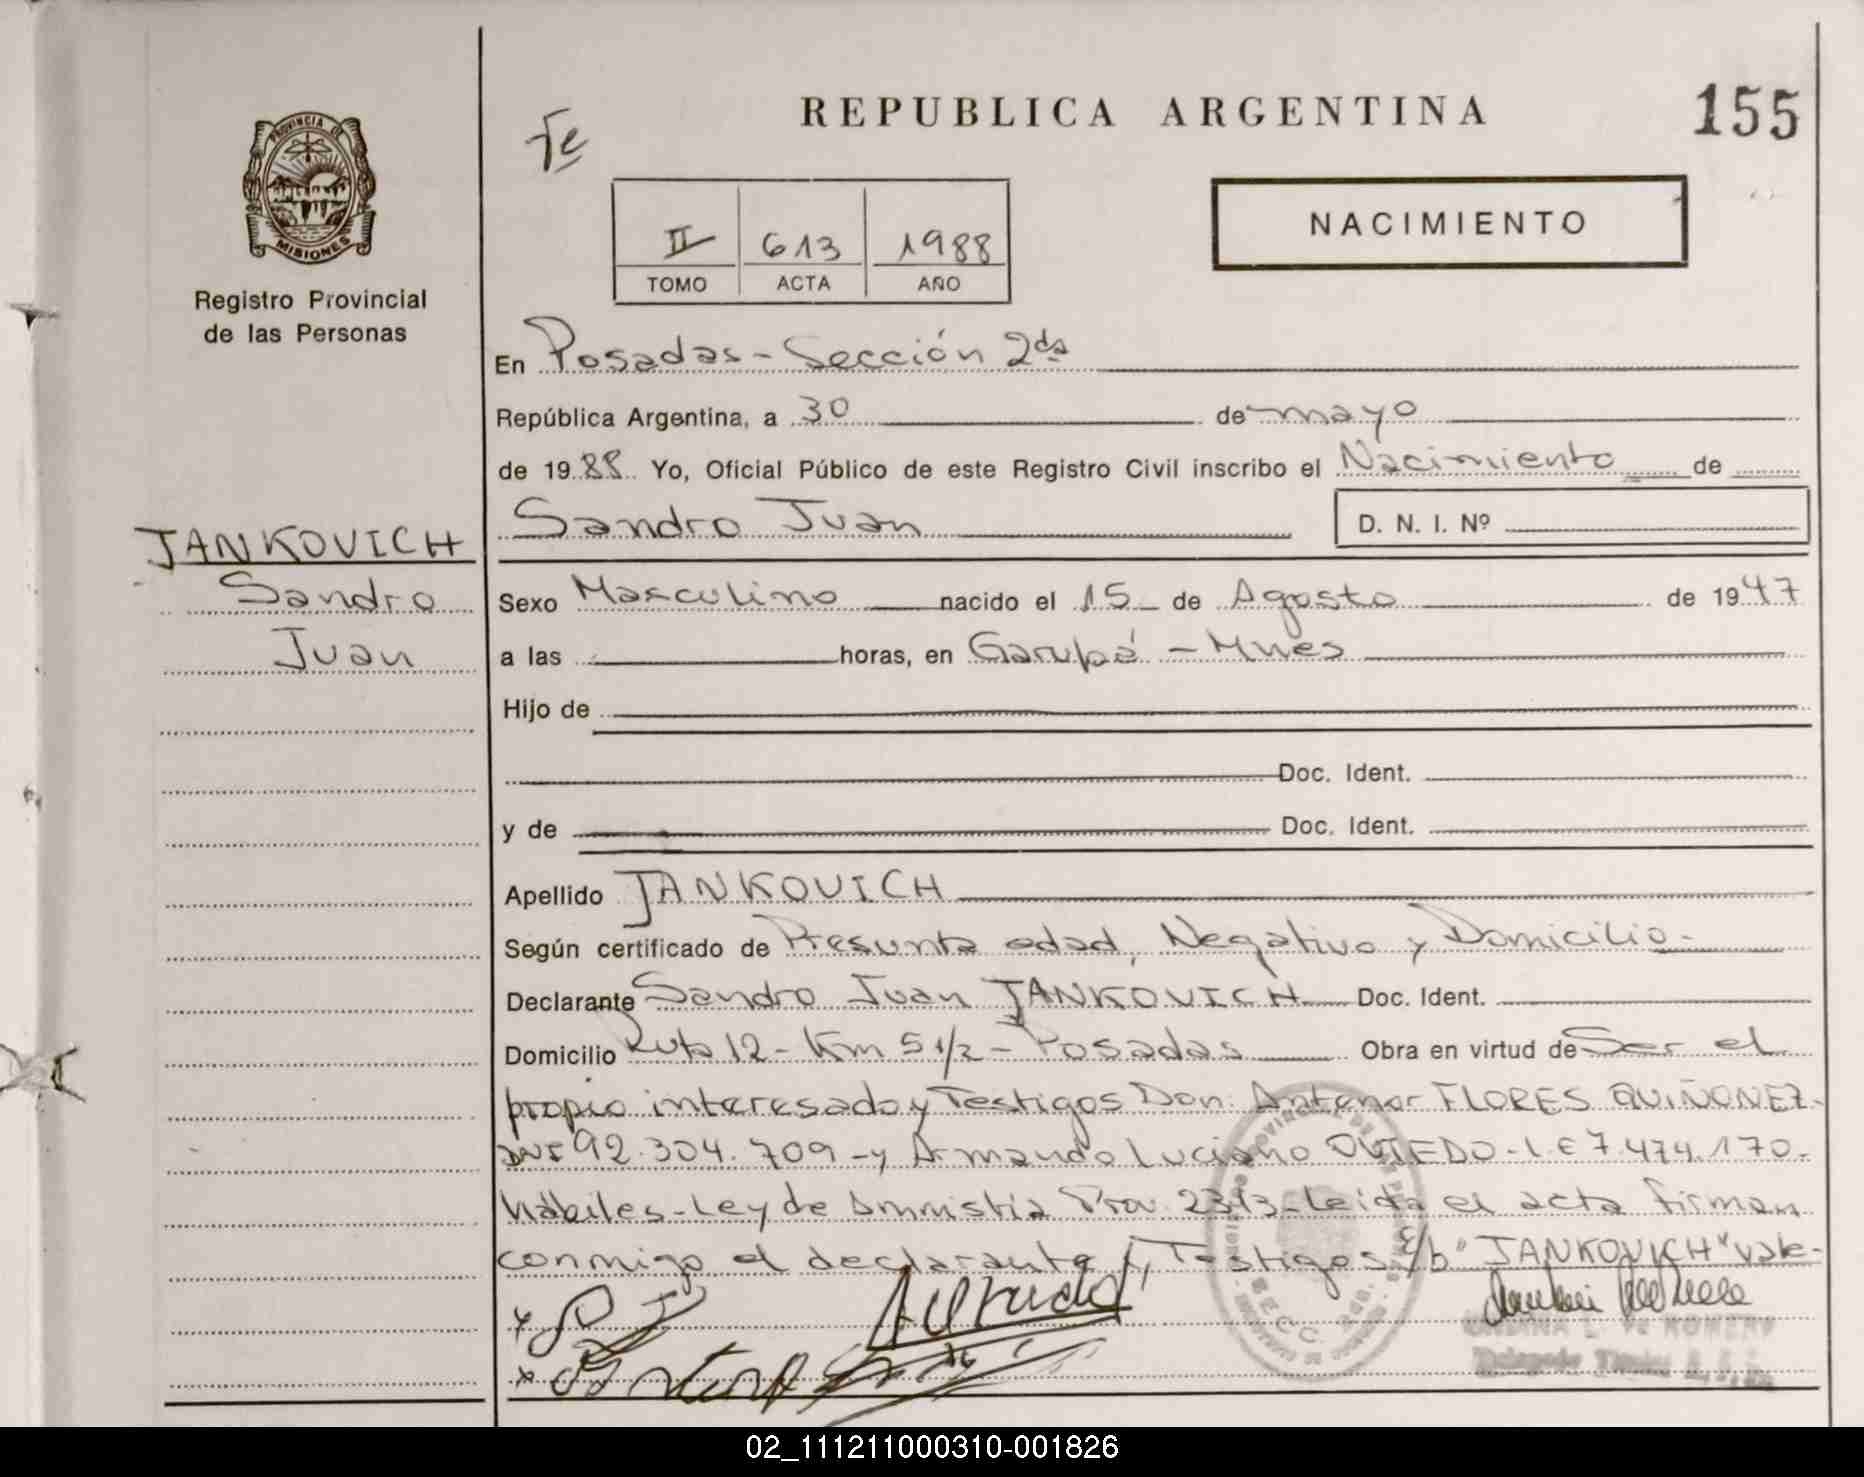 REPUBLICA ARGENTINA
155
PROVINCIA DE
MISIONES
Registro Provincial
de las Personas
NACIMIENTO
II 613 1988
TOMO ACTA AÑO
En Posadas - Sección 2da
República Argentina, a 30 de mayo
de 1988 Yo, Oficial Público de este Registro Civil inscribo el Nacimiento de
Sandro Juan D. N. I. Nº
JANKOVICH
Sandro
Juan
Sexo Masculino nacido el 15 de Agosto de 1947
a las horas, en Garupá - Mnes
Hijo de
Doc. Ident.
y de Doc. Ident.
Apellido JANKOVICH
Según certificado de Presunta edad, Negativo y Domicilio.
Declarante Sandro Juan JANKOVICH Doc. Ident.
Domicilio Ruta 12 - Km 5 1/2 - Posadas Obra en virtud de Ser el
propio interesado y Testigos Don: Antenor FLORES QUIÑONEZ.
DNI 92.304.709 - y Armando Luciano OVIEDO - L.E 7.474.170.
Hábiles - Ley de Amnistía Prov. 2313 - Leída el acta firman
conmigo el declarante y Testigos. E/b "JANKOVICH" vale-
02_111211000310-001826